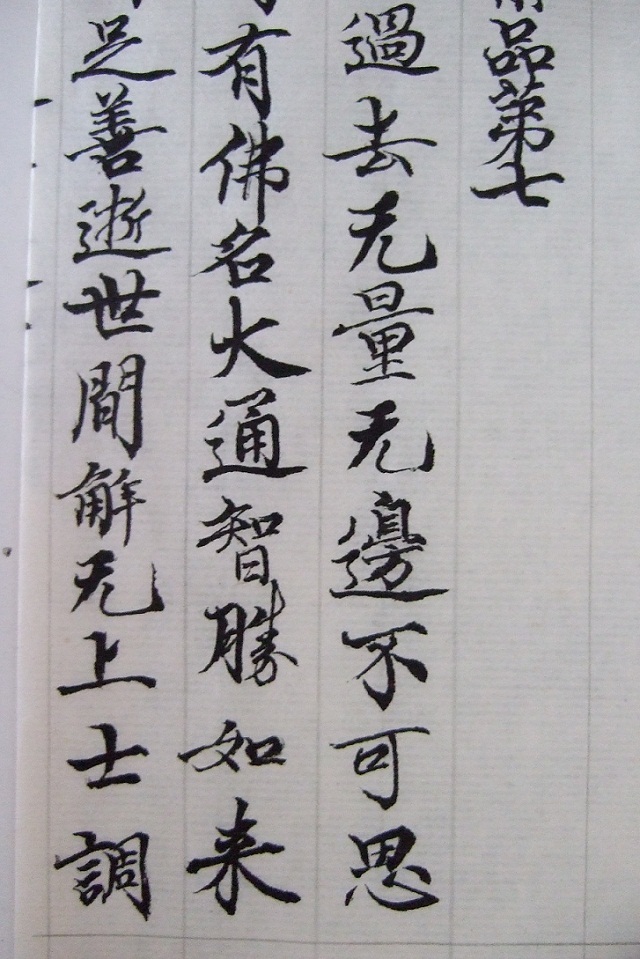 品第七
過去无量无邊不可思
有佛名大通智勝如来
足善逝世間解无上士調